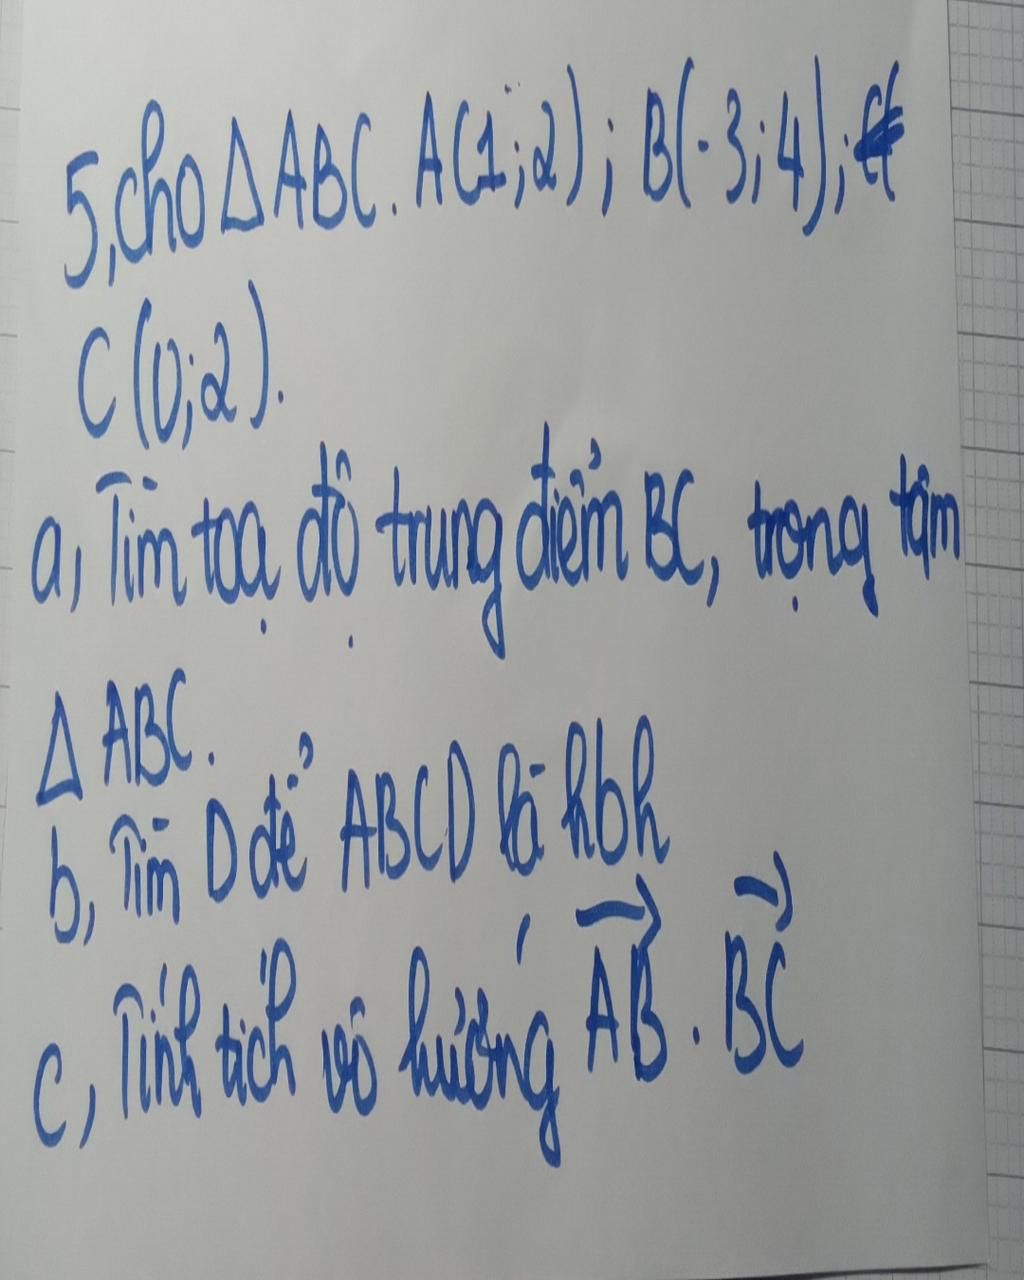 5, cho ΔABC. A(1;2); B(-3;4);
C(0;2).
a, Tìm toạ độ trung điểm BC, trọng tâm
Δ ABC.
b, Tìm D để ABCD là hbh
c, Tính tích vô hướng \overrightarrow{AB} . \overrightarrow{BC}